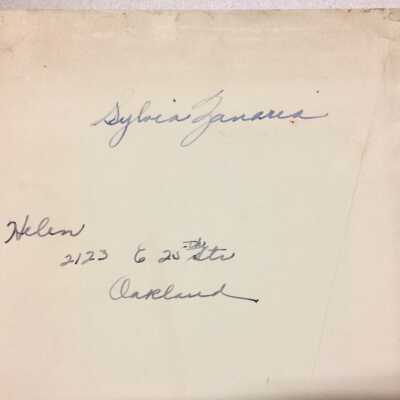 Sylvia Zanaria
Helen
2123 E 20the Str
Oakland